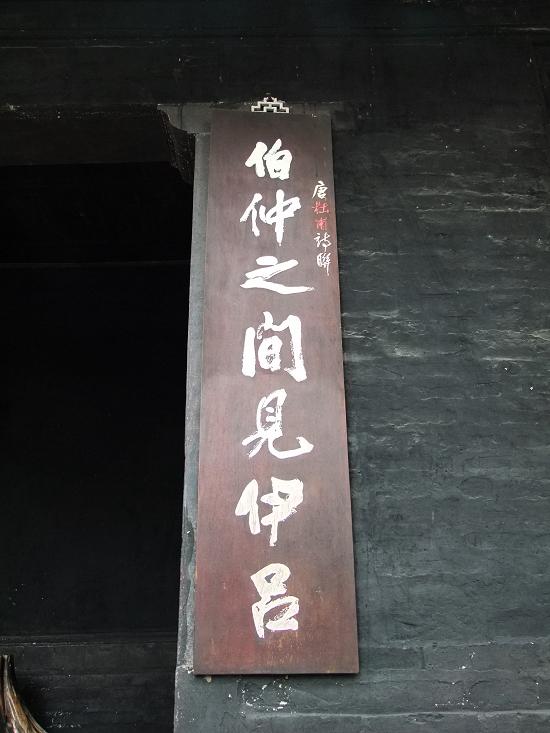 唐杜甫詩聯
伯仲之間見伊呂